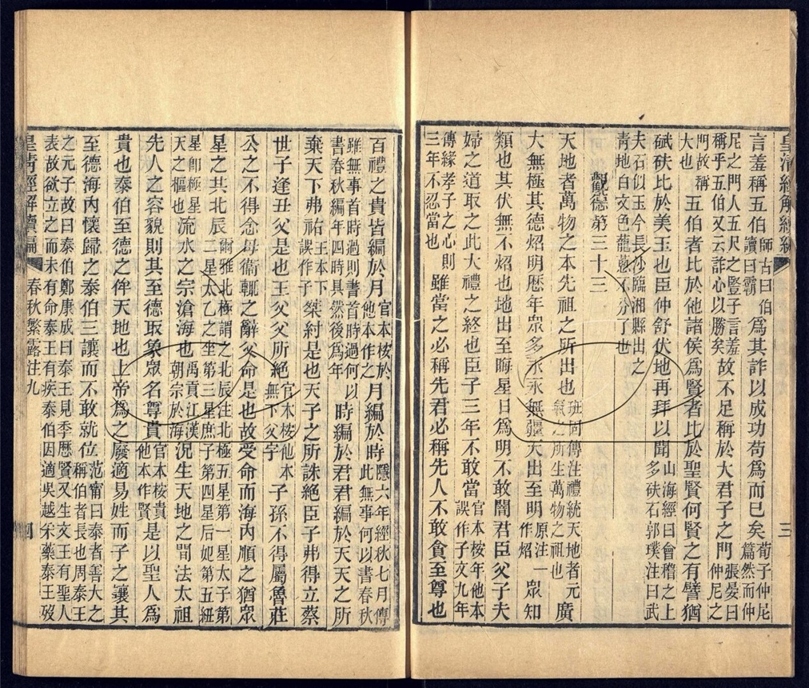 皇清經解續編　三
言羞稱五伯師古曰伯讀曰霸爲其詐以成功苟爲而已矣荀子仲尼篇然而仲
尼之門人五尺之豎子言羞稱乎五伯又云詐心以勝矣故不足稱於大君子之門張晏曰仲尼之
門故稱大也五伯者比於他諸侯爲賢者比於聖賢何賢之有譬猶
碔砆比於美玉也臣仲舒伏地再拜以聞山海經曰會稽之上多砆石郭璞注曰武
夫石似玉今長沙臨湘縣出之青地白文色蘢葱不分了也
觀德第三十三
天地者萬物之本先祖之所出也班固傳注禮統天地者元氣之所生萬物之祖也廣
大無極其德炤明歷年衆多永永無疆天出至明原注一作炤衆知
類也其伏無不炤也地出至晦星日爲明不敢闇君臣父子夫
婦之道取之此大禮之終也臣子三年不敢當官本桉年他本誤作子文九年
傳緣孝子之心則三年不忍當也雖當之必稱先君必稱先人不敢貪至尊也
百禮之貴皆編於月官本桉於他本作之月編於時隱六年經秋七月傳此無事何以書春秋
雖無事首時過則書首時過何以書春秋編年四時具然後爲年時編於君君編於天天之所
棄天下弗祐王本下誤作子桀紂是也天子之所誅絕臣子弗得立蔡
世子逢丑父是也王父父所絕官本桉他本無下父字子孫不得屬魯莊
公之不得念母衞輒之辭父命是也故受命而海內順之猶衆
星之共北辰爾雅北極謂之北辰注北極五星第一星太子第二星太乙之坐第三星庶子第四星后妃第五紐
星即極星天之樞也流水之宗滄海也禹貢江漢朝宗於海況生天地之間法太祖
先人之容貌則其至德取象衆名尊貴官本桉貴他本作賢是以聖人爲
貴也泰伯至德之侔天地也上帝爲之廢適易姓而子之讓其
至德海內懷歸之泰伯三讓而不敢就位范甯曰泰者善大之稱伯者長也周泰王
之元子故曰泰伯鄭康成曰泰王見季歷賢又生文王有聖人表故欲立之而未有命泰王有疾泰伯因適吳越采藥泰王歿
皇清經解續編　春秋繁露注九　四